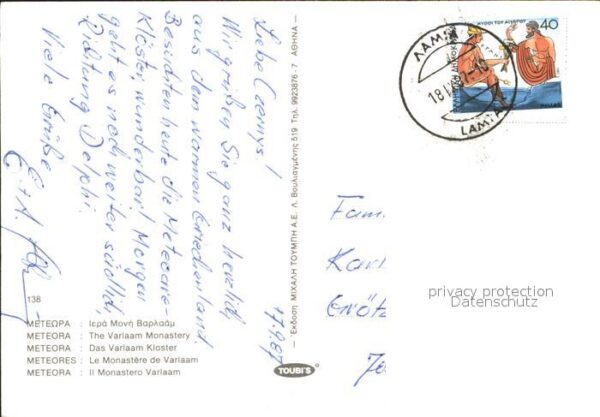 Liebe Czernys!
Wir grüßen Sie ganz herzlich
aus dem warmen Griechenland.
Besichten heute die Meteora-
Klöster, wunderbar! Morgen
geht es noch weiter südlich,
Richtung Delphi.
Viele Grüße
17.9.87
138
ΜΕΤΕΩΡΑ : Ιερά Μονή Βαρλαάμ
METEORA : The Varlaam Monastery
METEORA : Das Varlaam Kloster
METEORES : Le Monastère de Varlaam
METEORA : Il Monastero Varlaam
— Έκδοση ΜΙΧΑΛΗ ΤΟΥΜΠΗ Α.Ε. Λ. Βουλιαγμένης 519 Τηλ. 9923876 - 7 ΑΘΗΝΑ —
TOUBI'S
ΜΥΘΟΙ ΤΟΥ ΑΙΣΩΠΟΥ 40
HELLAS
ΛΑΜΙΑ
LAMIA
Fam.
Grötz
privacy protection
Datenschutz